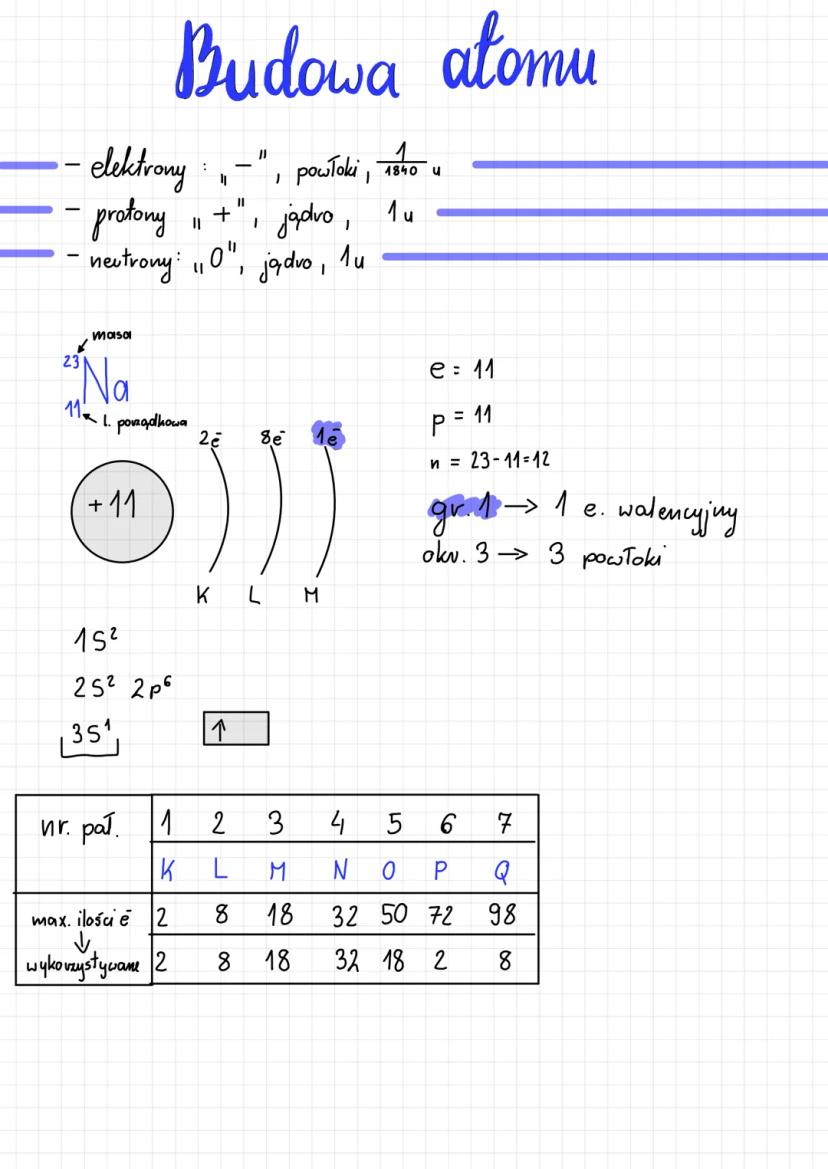 Budowa atomu
- elektrony : „-", powłoki, 1/1840 u
- protony „+", jądro, 1u
- neutrony: „0", jądro, 1u
masa
23
Na
11
l. porządkowa
e = 11
p = 11
n = 23-11=12
2e⁻ 8e⁻ 1e⁻
+11
K L M
gr. 1 → 1 e. walencyjny
okr. 3 → 3 powłoki
1s²
2s² 2p⁶
3s¹ ↑
nr. pał. 1 2 3 4 5 6 7
K L M N O P Q
max. ilości e⁻ 2 8 18 32 50 72 98
↓
wykorzystywane 2 8 18 32 18 2 8